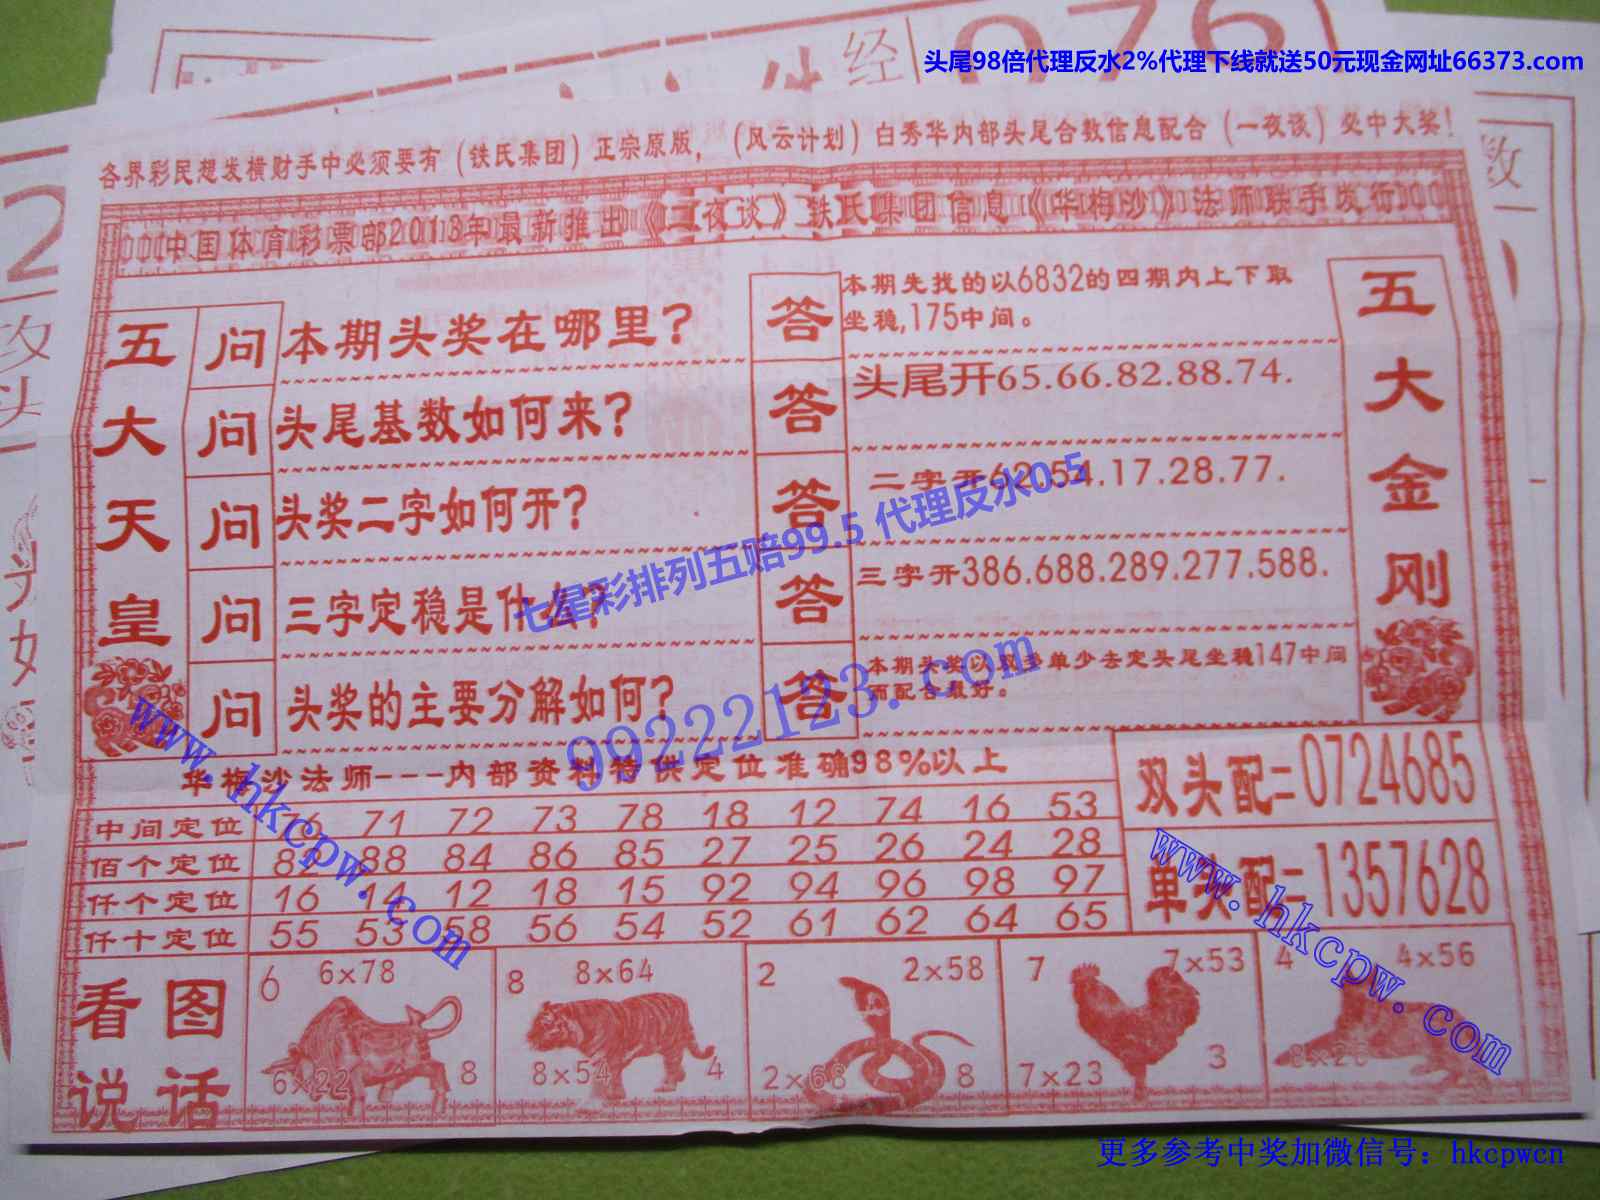 经
076
头尾98倍代理反水2%代理下线就送50元现金网址66373.com
各界彩民想发横财手中必须要有（铁氏集团）正宗原版，（风云计划）白秀华内部头尾合数信息配合（一夜谈）必中大奖！
中国体育彩票部2013年最新推出《一夜谈》铁氏集团信息《华梅沙》法师联手发行
五大天皇
问 本期头奖在哪里？
答 本期先找的以6832的四期内上下取
坐稳,175中间。
问 头尾基数如何来？
答 头尾开65.66.82.88.74.
问 头奖二字如何开？
答 二字开62.54.17.28.77.
问 三字定稳是什么？
答 三字开386.688.289.277.588.
问 头奖的主要分解如何？
答 本期头奖以双多单少去定头尾坐稳147中间
而配合最好。
五大金刚
七星彩排列五赔99.5 代理反水0.5
99222123.com
www.hkcpw.com
华梅沙法师---内部资料特供定位准确98%以上
中间定位 76 71 72 73 78 18 12 74 16 53
佰个定位 82 88 84 86 85 27 25 26 24 28
仟个定位 16 14 12 18 15 92 94 96 98 97
仟十定位 55 53 58 56 54 52 61 62 64 65
双头配二0724685
单头配二1357628
www.hkcpw.com
看图
说话
6 6×78
6×22 8
8 8×64
8×54 4
2 2×58
2×68 8
7 7×53
7×23 3
4 4×56
更多参考中奖加微信号：hkcpwcn